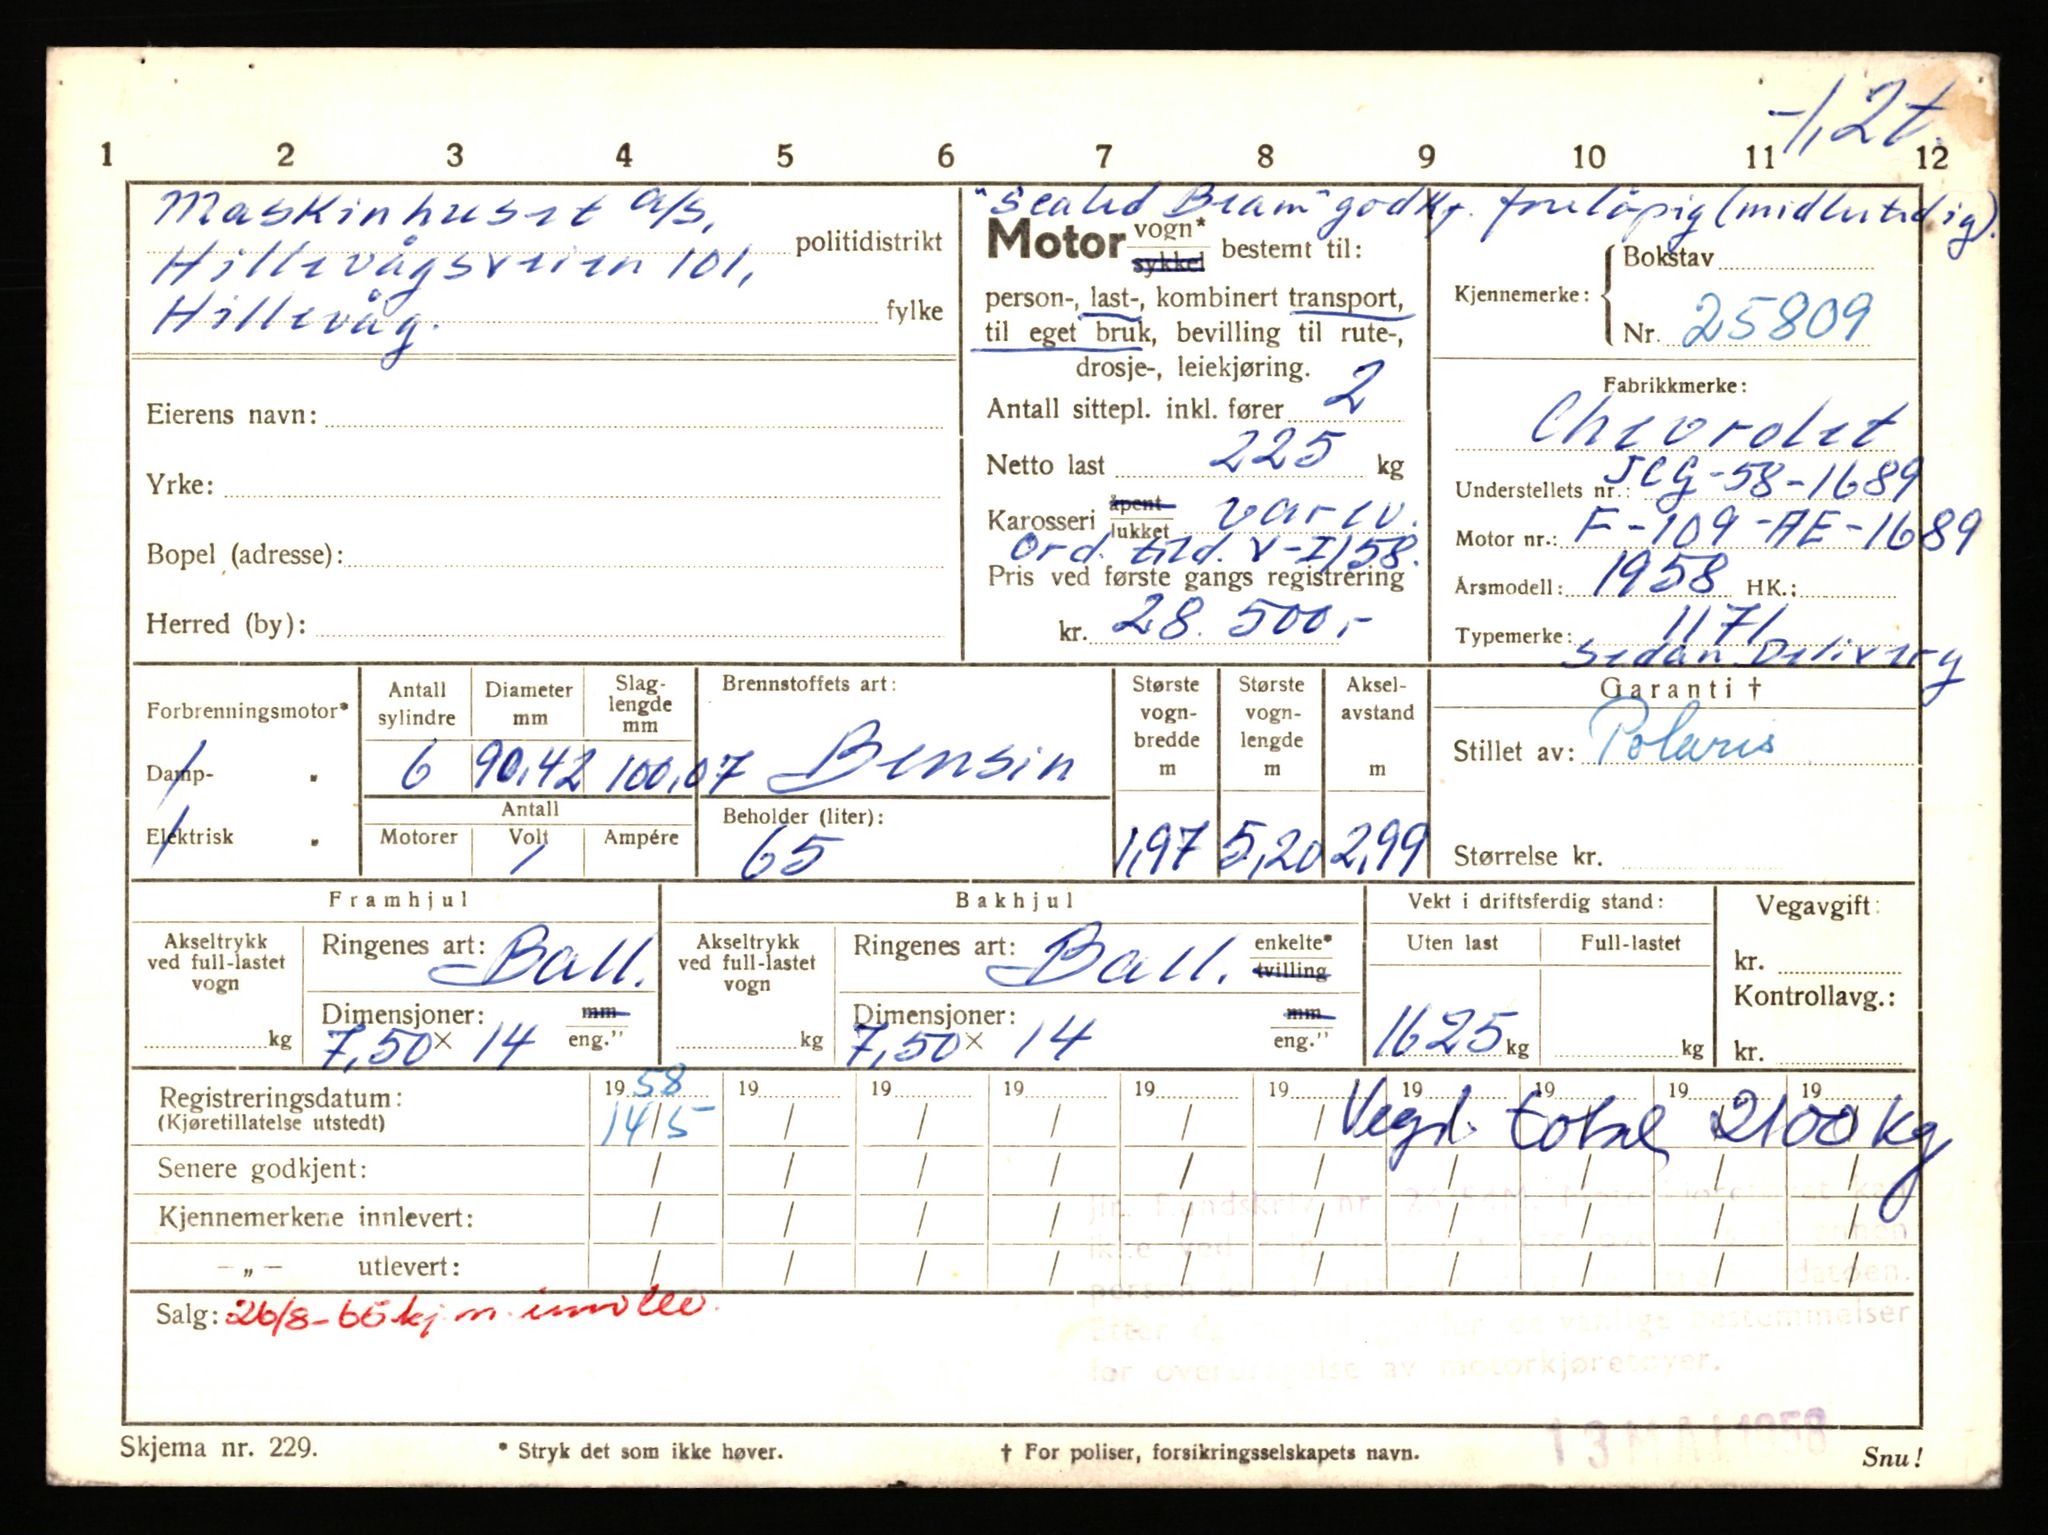 -1,2t.
1 2 3 4 5 6 7 8 9 10 11 12
Maskinhuset a/s,
politidistrikt
Hillevågsveien 101,
Hillevåg.
fylke
Eierens navn:
Yrke:
Bopel (adresse):
Herred (by):
"Sealed Beam" godkj. foreløpig (midlertidig).
Motor vogn* sykkel bestemt til:
person-, last-, kombinert transport,
til eget bruk, bevilling til rute-,
drosje-, leiekjøring.
Antall sittepl. inkl. fører 2
Netto last 225 kg
Karosseri åpent lukket varev.
Ord. tild. V-I/58.
Pris ved første gangs registrering
kr. 28.500,-
Kjennemerke: Bokstav
Nr. 25809
Fabrikkmerke:
Chevrolet
Understellets nr.: JCG-58-1689
Motor nr.: F-109-AE-1689
Årsmodell: 1958 HK.:
Typemerke: 1171
Sedan Delivery
Forbrenningsmotor*
Damp- "
Elektrisk "
Antall sylindre
6
Diameter mm
90,42
Slaglengde mm
100,07
Antall
Motorer Volt Ampére
Brennstoffets art:
Bensin
Beholder (liter):
65
Største vognbredde m
1,97
Største vognlengde m
5,20
Akselavstand m
2,99
Garanti †
Stillet av: Polaris
Størrelse kr.
Framhjul
Akseltrykk ved full-lastet vogn
kg
Ringenes art: Ball.
Dimensjoner: mm
7,50 × 14 eng."
Bakhjul
Akseltrykk ved full-lastet vogn
kg
Ringenes art: Ball. enkelte* tvilling
Dimensjoner: mm
7,50 × 14 eng."
Vekt i driftsferdig stand:
Uten last Full-lastet
1625 kg kg
Vegavgift:
kr.
Kontrollavg.:
kr.
Registreringsdatum: 19 58 19 19 19 19 19 19 19 19 19
(Kjøretillatelse utstedt) 14/5 / / / / / Vegd. total 2100 kg
Senere godkjent:
Kjennemerkene innlevert:
— „ — utlevert:
Salg: 26/8-65 kj.m. innlev.
for de vanlige bestemmelser
for overdragelse av motorkjøretøyer.
13 MAI 1958
Skjema nr. 229.
* Stryk det som ikke høver.
† For poliser, forsikringsselskapets navn.
Snu!